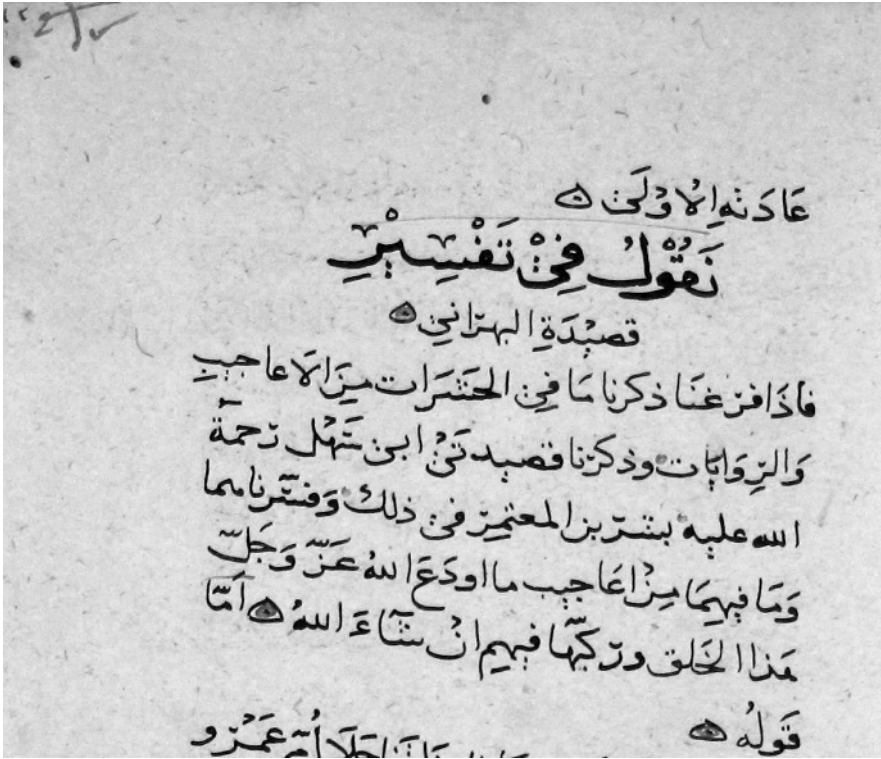 عَادَته الاوْلَى
نَقُوْلُ فِيْ تَفْسِيْرِ
قصيْدَةِ البهرَانيّ
فاذَا فرَغنَا ذكرنا مَا فِي الحَشَرَات مِنَ الاَعاجيبِ
وَالرِوَايَات وذكرْنا قصيدتَيْ ابى سَهْل رحمَةُ
الله عليه بشْر بن المعتَمِر في ذلك وَفسَّرناهما
وَمَا فيهِمَا مِنْ اعَاجيب ما اودَعَ اللهُ عَزَّ وَجَلَّ
هَذا الخَلق وركبّهَا فيهِم انْ شَآءَ اللهُ اَمَّا
قَولُهُ
اُمّ عَمْرو